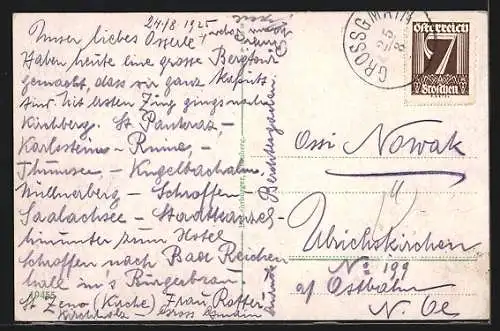 24/8 1925
Unser liebes Osserle!
Haben heute eine grosse Bergtour
gemacht, dass wir ganz kaputt
sind. Mit ersten Zug gings nach
Kirchberg. St Pankraz -
Karlstein - Ruine -
Thumsee - Kugelbachalm,
Müllnerberg - Schroffen
Saalachsee - Stadtkanzel -
hinunter zum Hotel
Schroffen nach Bad Reichen
hall in's Bürgerbräu.
St Zeno (Kirche) Frau Rotter
Kirchholz - Gross Gmain
10455
GROSSGMAIN
25
8
Österreich
7
Groschen
Ossi Nowak
Ulrichskirchen
No 199
a/ Ostbahn
N. Oe